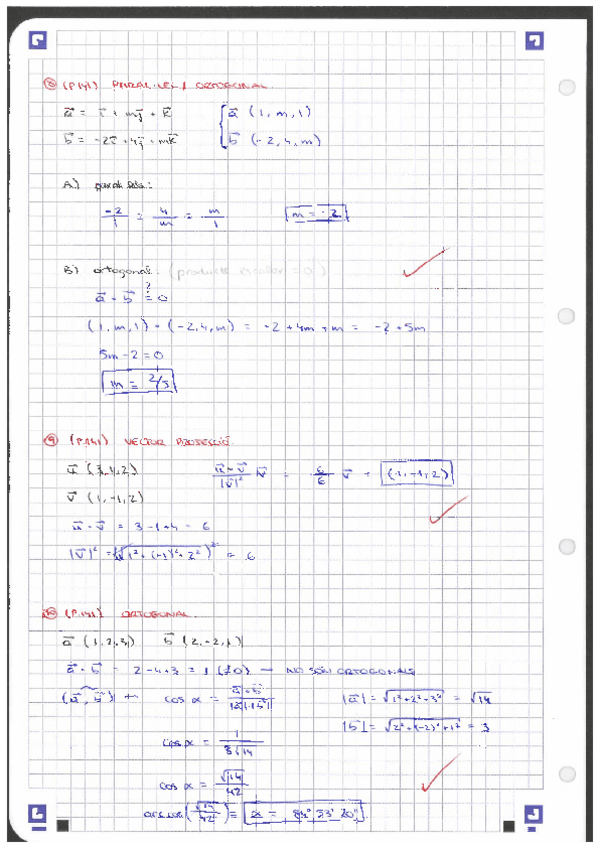 ⑧ (P.141) PARAL·LEL / ORTOGONAL
a⃗ = i⃗ + mj⃗ + k⃗ { a⃗ (1, m, 1)
b⃗ = -2i⃗ + 4j⃗ + mk⃗ b⃗ (-2, 4, m)
A)
-2/1 = 4/m = m/1 m = -2
B) ortogonal: (producte escalar = 0)
a⃗ · b⃗ =? 0
(1, m, 1) · (-2, 4, m) = -2 + 4m + m = -2 + 5m
5m - 2 = 0
m = 2/5
⑨ (P.141) VECTOR PROJECCIÓ
u⃗ (3, 1, 2) u⃗·v⃗/|v⃗|² v⃗ = 6/6 v⃗ = (1, -1, 2)
v⃗ (1, -1, 2)
u⃗ · v⃗ = 3 - 1 + 4 = 6
|v⃗|² = (√1² + (-1)² + 2²)² = 6
⑩ (P.141) ORTOGONAL
a⃗ (1, 2, 3) b⃗ (2, -2, 1)
a⃗ · b⃗ = 2 - 4 + 3 = 1 (≠0) → NO SÓN ORTOGONALS
(a⃗, b⃗) → cos α = a⃗·b⃗/|a⃗|·|b⃗| |a⃗| = √1² + 2² + 3² = √14
|b⃗| = √2² + (-2)² + 1² = 3
cos α = 1/3√14
cos α = √14/42
arccos(√14/42) = α =